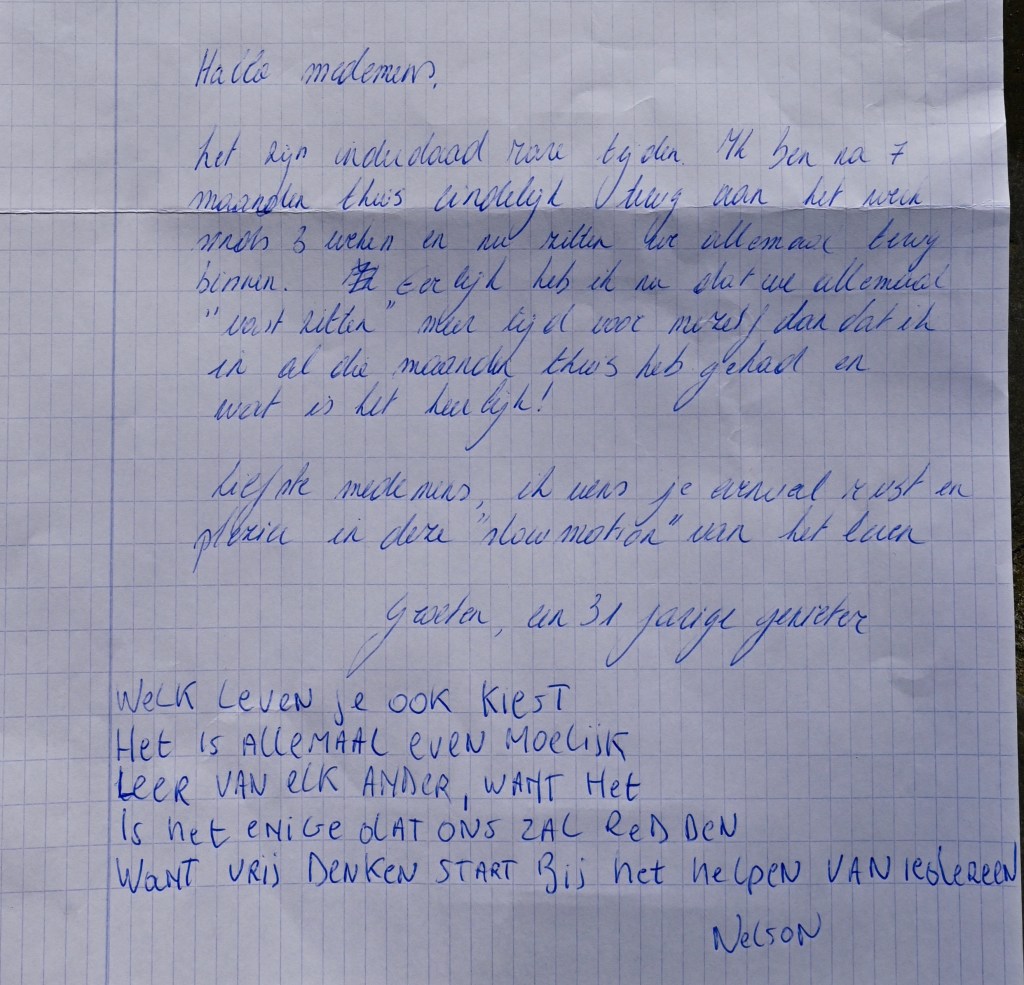 Hallo medemens,
het zijn inderdaad rare tijden. Ik ben na 7
maanden thuis eindelijk terug aan het werk
sinds 3 weken en nu zitten we allemaal terug
binnen. Eerlijk heb ik nu dat we allemaal
"vast zitten" meer tijd voor mezelf dan dat ik
in al die maanden thuis heb gehad en
wat is het heerlijk!
Liefste medemens, ik wens je evenveel rust en
plezier in deze "slowmotion" van het leven
Groeten, een 31 jarige genieter
WELK LEVEN je OOK KIEST
HET IS ALLEMAAL EVEN MOELIJK
LEER VAN ELK ANDER, WANT HET
IS HET ENIGE DAT ONS ZAL REDDEN
WANT VRIJ DENKEN START BIJ HET HELPEN VAN IEDEREEN
NELSON